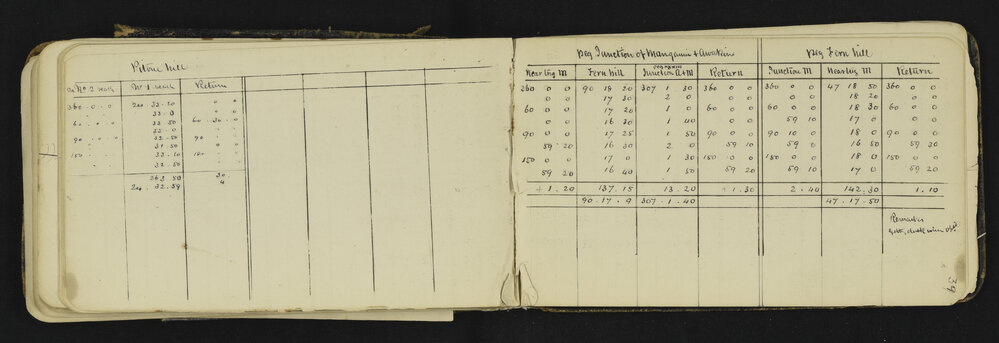 Pitone hill
on No 2 reach No 1 reach Return
360 . 0 . 0 200 33 . 20 0 0
. . 33 . 0 0 0
60 . 0 . 0 33 . 50 60 . 30 . 0
. . 33 . 0 0
90 . 0 . 0 32 . 50 90 . .
. . 31 . 50 . 0
150 . . 33 . 10 120 . .
. . 32 . 50
263 50 30
200 . 32 . 59 4
peg Junction of Mangamii & Awakino peg Fern hill
Near big M Fern hill Junction A & M Return Junction M Near big M Return
360 0 0 90 18 20 307 1 30 360 0 0 360 0 0 47 18 50 360 0 0
0 0 17 30 2 0 0 0 0 0 18 20 0 0
60 0 0 17 20 1 0 60 0 0 60 0 0 18 30 60 0 0
0 0 16 30 1 40 0 0 59 10 17 0 0 0
90 0 0 17 25 1 50 90 0 0 90 10 0 18 0 90 0 0
59 20 16 30 2 0 59 10 59 0 16 50 59 30
150 0 0 17 0 1 30 150 0 0 150 0 0 18 0 150 0 0
59 20 16 40 1 50 59 20 59 10 17 0 59 20
+ 1 . 20 137 . 15 13 . 20 + 1 . 30 2 . 40 142 . 30 1 . 10
90 . 17 . 9 307 . 1 . 40 47 . 17 . 50
Remarks
39